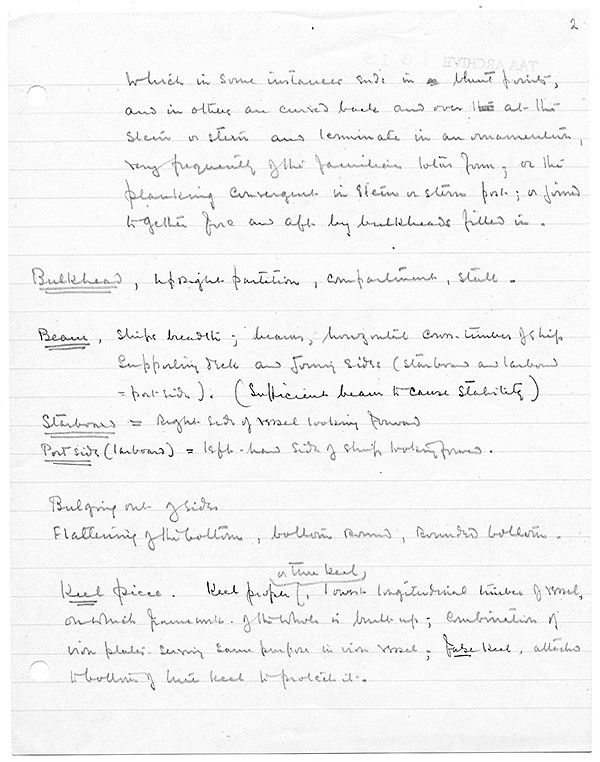 2
which in some instances ends in blunt points,
and in others are curved back and over at the
stem or stern and terminate in an ornamentation,
very frequently of the familiar lotus form; or the
planking convergent in stem or stern post; or joined
together fore and aft by bulkheads fitted in.
Bulkhead, upright partition, compartment, stall.
Beam, ships breadth; beams, horizontal cross-timbers of ship
supporting deck and joining sides (starboard and larboard
= port side). (Sufficient beam to cause stability)
Starboard = Right side of vessel looking forward
Port side (larboard) = left-hand side of ship looking forward.
Bulging out of sides
Flattening of the bottom, bottom round, rounded bottom.
or true keel
Keel piece. Keel proper, lowest longitudinal timber of vessel,
on which framework of the whole is built up; combination of
iron plates serving same purpose in iron vessel; false keel, attached
to bottom of true keel to protect it.